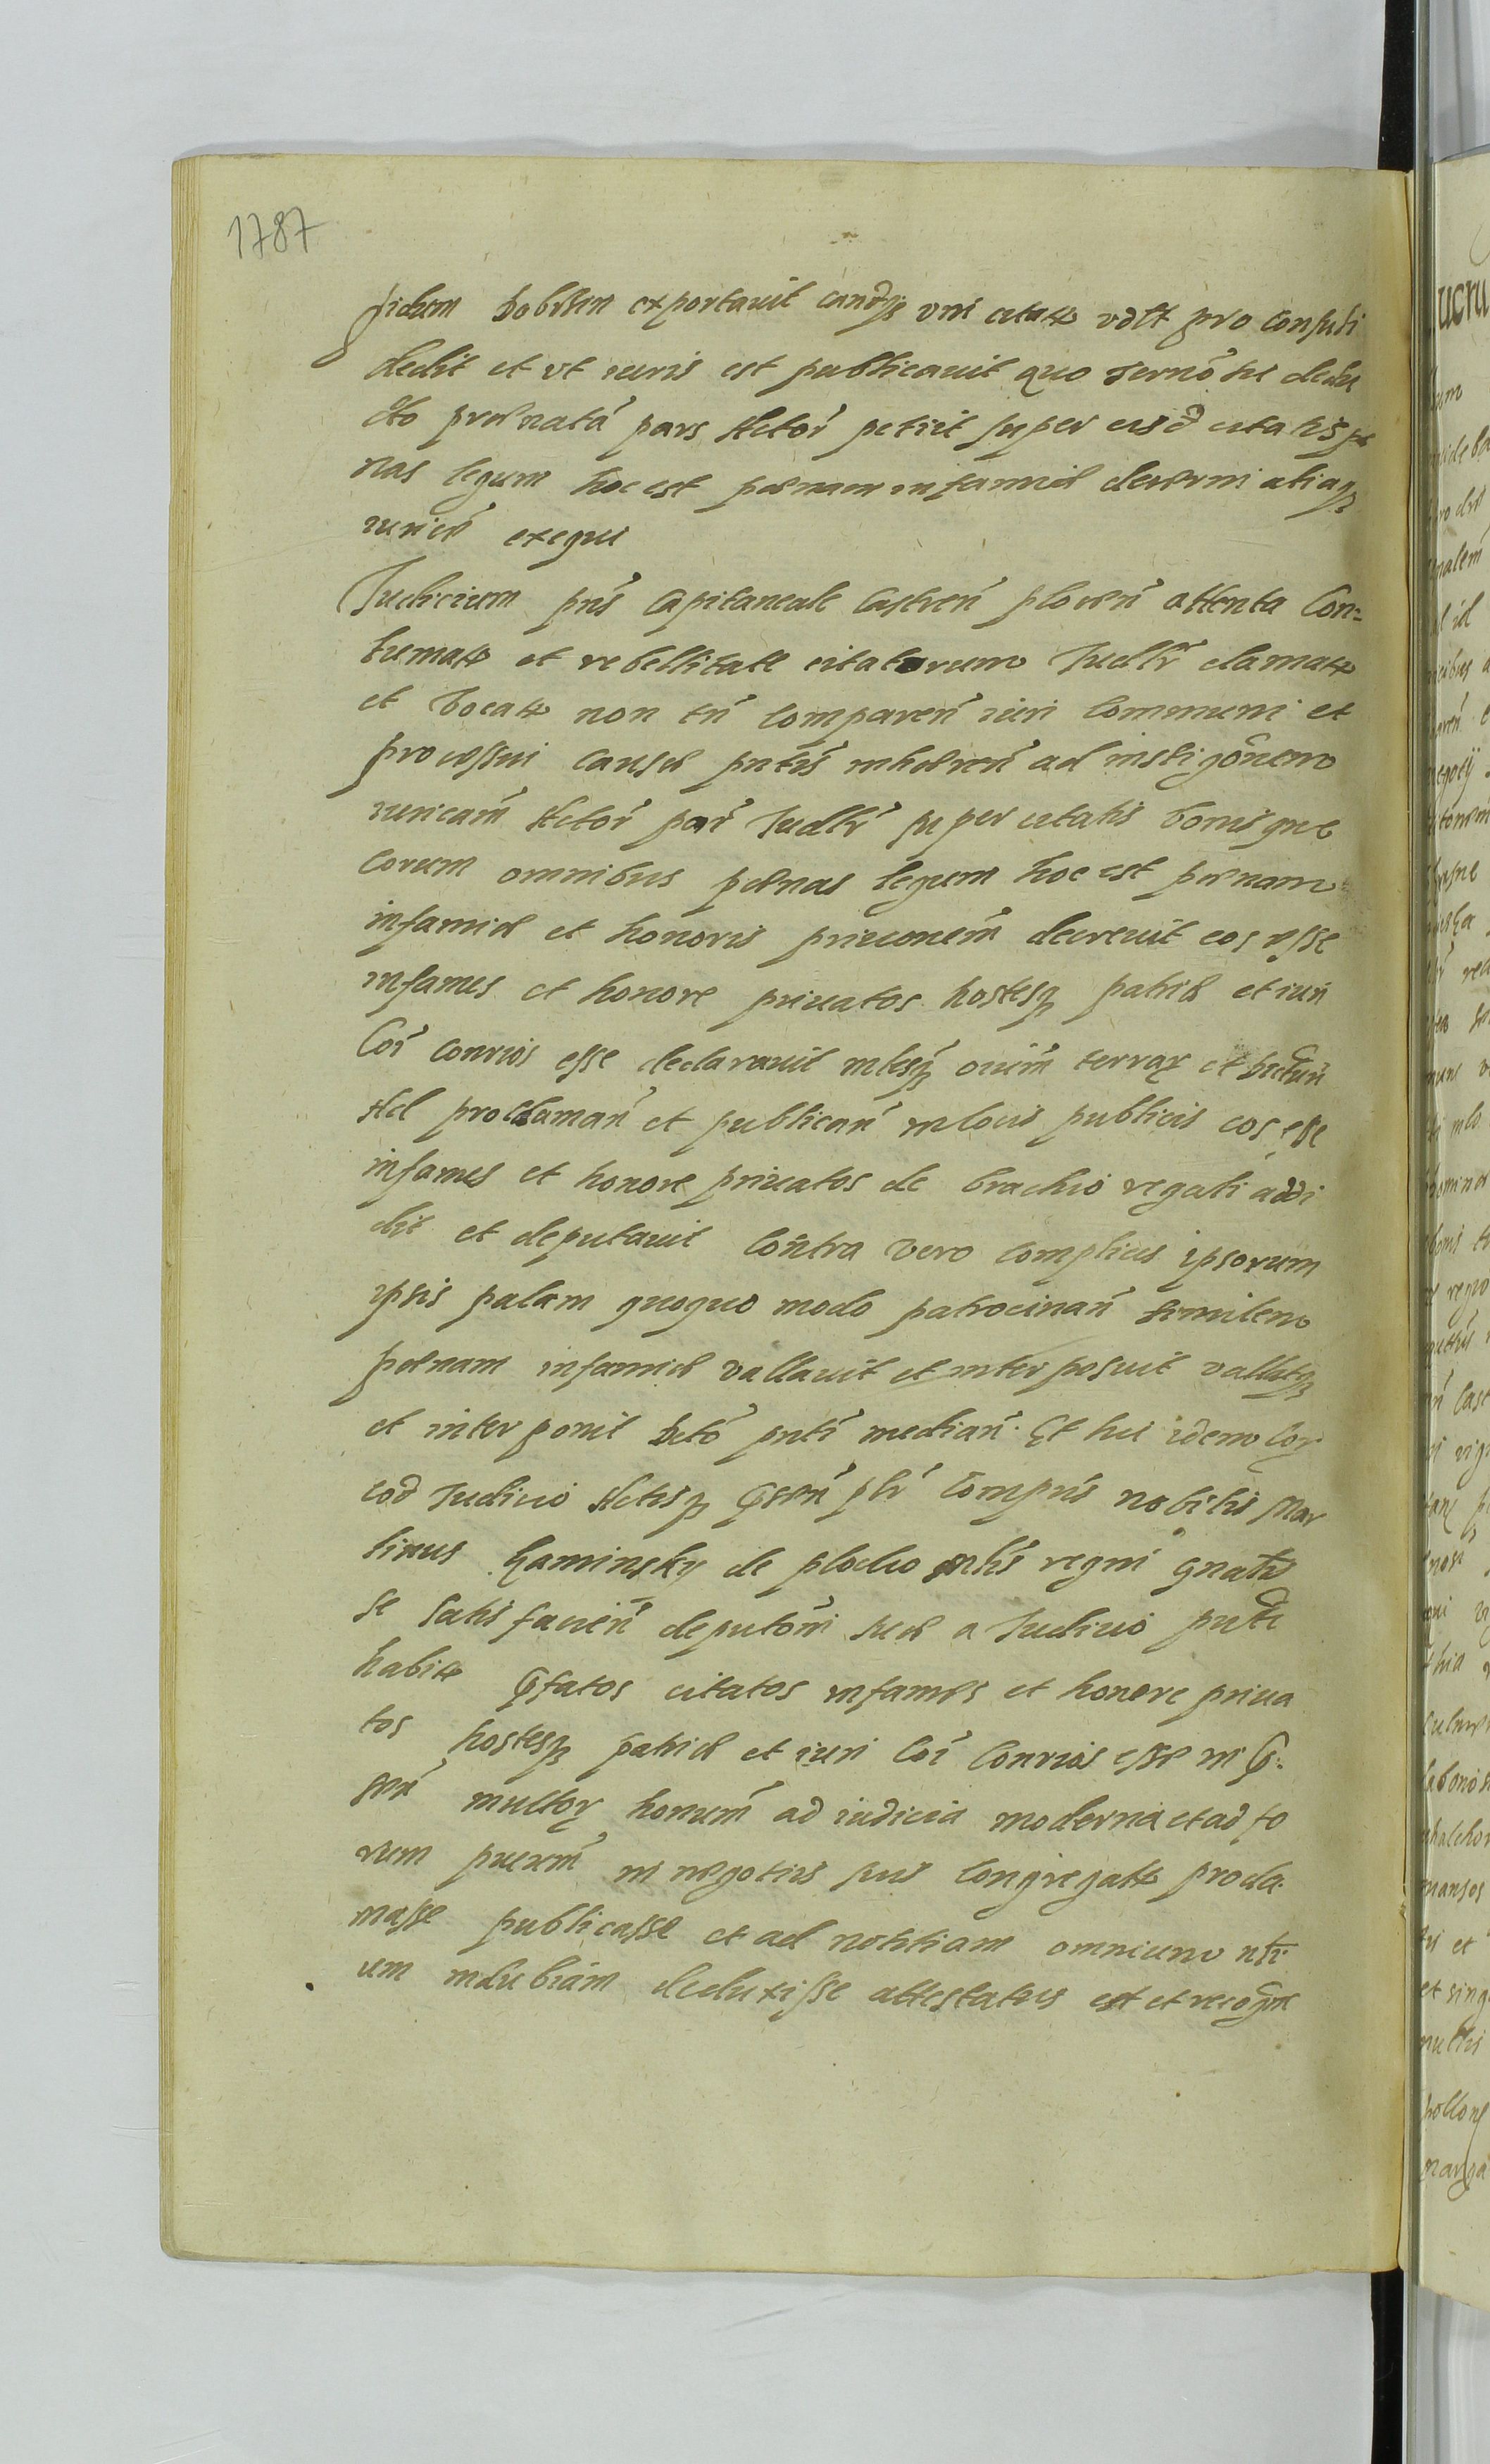 1787
pidum Dobrzin exportavit uni citatorum pro confuti
dedit et ut iuris est publicavit quo Termō sic dedu
cto pars Actoř petiit super eisd citatis pæ
nas legum hoc est pœnam infamiæ decerni aliaq
iuricē exequi
Iudicium pñs Capitaneale Castreñ ploceñ attenta Con=
tumacia et rebellitate citatorum Iudlr clamat
et vocat non tñ compareñ iuri communi et
processui causæ pntis inhæreñ ad instigōnem
iuricam Actoř par Iudlr super citatis bonisque
eorum omnibus pœnas legum hoc est pœnam
infamiæ et honoris privōnem decrevit eos esse
infames et honore privatos hostesq patriæ et iuri
Coī conrios esse declaravit oium terrarum et
Ad proclamañ et publicañ in locis publicis eos esse
infames et honore privatos de brachio regali addi
dit et deputavit Contra vero complices ipsorum
ipsis palam quoquo modo patrocinañ similem
pœnam infamiæ vallavit et interposuit vallatq
et interponit Dcto pnti mediañ. Et hic idem cor
eod Iudicio Actisq pseñ plr compns nobilis Mar
tinus Kaminsky de plocko mlis regni gnalis
se satisfacieñ deputōni suæ a Iudicio pnti
habitæ pfatos citatos infames et honore priva
tos hostesq patriæ et iuri Coī conrios esse in p.
señ multor homum ad iudicia moderna et ad fo
rum in negotiis suis congregatorum procla
masse publicasse et ad notitiam omnium
um indubiam deduxisse attestatus est et recogn